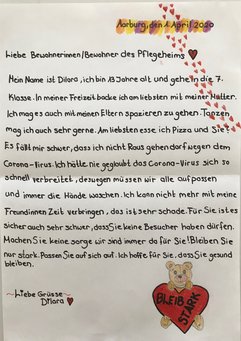 Aarburg, den 1 April 2020
Liebe Bewohnerinnen/Bewohner des Pflegeheims
Mein Name ist Dilara, ich bin 13 Jahre alt und gehe in die 7.
Klasse. In meiner Freizeit backe ich am liebsten mit meiner Mutter.
Ich mag es auch mit meinen Eltern spazieren zu gehen. Tanzen
mag ich auch sehr gerne. Am liebsten esse ich Pizza und Sie?
Es fällt mir schwer, dass ich nicht Raus gehen darf wegen dem
Corona-Virus. Ich hätte nie geglaubt das Corona-Virus sich so
schnell verbreitet, deswegen müssen wir alle aufpassen
und immer die Hände waschen. Ich kann nicht mehr mit meine
Freundinnen Zeit verbringen, das ist sehr Schade. Für Sie ist es
sicher auch sehr schwer, dass Sie keine Besucher haben dürfen.
Machen Sie keine sorge wir sind immer da für Sie! Bleiben Sie
nur stark. Passen Sie auf sich auf. Ich hoffe für Sie, dass Sie gesund
bleiben.
Liebe Grüsse
Dilara
BLEIB
STARK